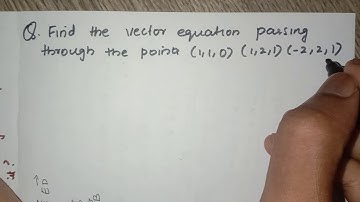 Q. Find the vector equation parsing
through the poina (1,1,0) (1,2,1) (-2,2,1)